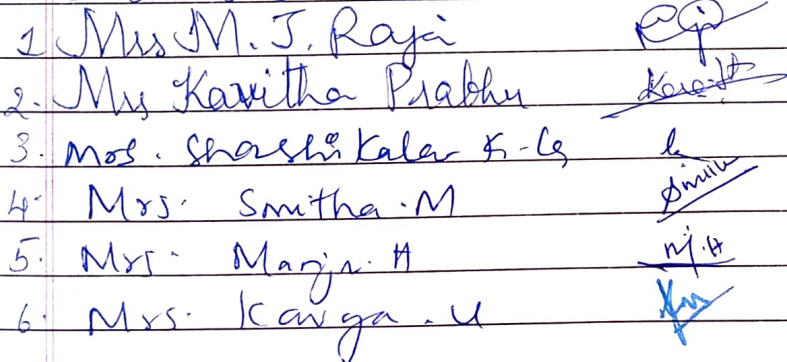 1 Mrs M. J. Raji
2. Mrs Kavitha Prabhu
3. Mrs. Shashi Kala K.
4. Mrs. Smitha. M
5. Mrs. Manju. H M.H
6. Mrs. Kavya. U